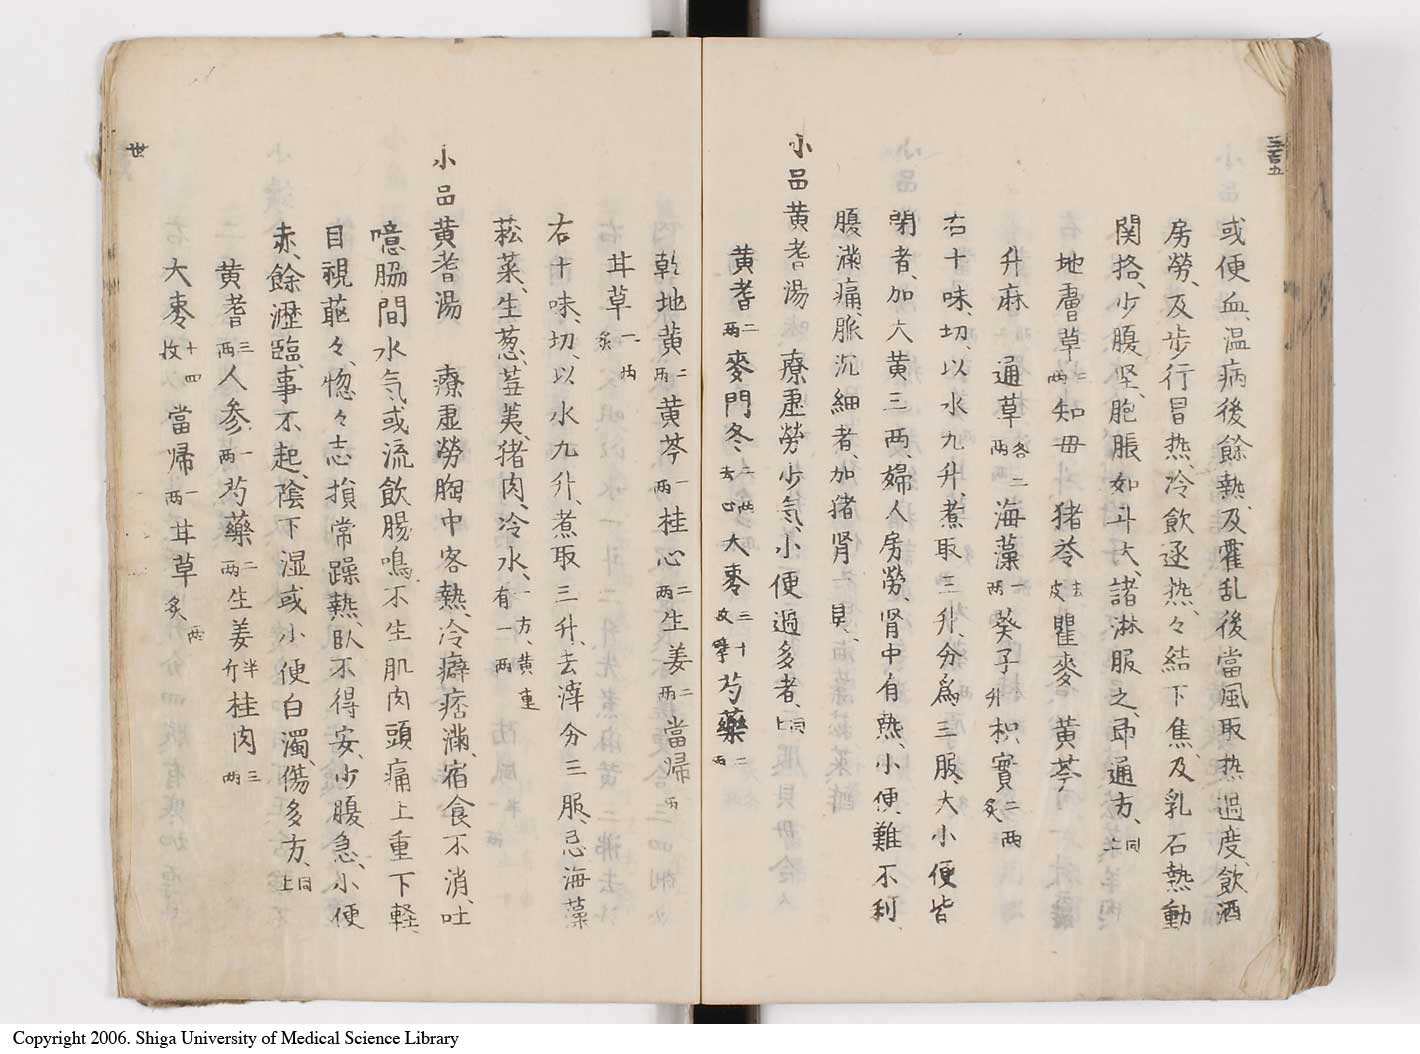 或便血、温病後餘熱、及霍乱後當風取热過度、飲酒
房勞、及步行冒热、冷飲逐热、々結下焦、及乳石熱動
関挌、少腹坚、胞脹如斗大、諸淋服之、即通方、同上
地膚草二両知母 猪苓去皮瞿麥 黄芩
升麻 通草各二両海藻一両葵子升枳實二両炙
右十味、切、以水九升、煮取三升、分爲三服、大小便皆
閉者、加大黄三両、婦人房勞、肾中有熱、小便難不利
腹滿痛、脈沉細者、加猪肾一具、
小品黄耆湯 療虚勞少気、小便過多者、同上
黄耆二両麥門冬二両去心大麥三十枚擘芍藥二両
乾地黄二両黄芩一両桂心二両生姜二両當帰一両
甘草一両炙
右十味、切、以水九升、煮取三升、去滓分三服、忌海藻
菘菜、生葱、蕪荑、猪肉、冷水、一方有黄連一両
小品黄耆湯 療虚勞胸中客熱、冷癖痞滿、宿食不消、吐
噫脇間水気或流飲腸鳴、不生肌肉頭痛上重下軽、
目視𥇀々、惚々志損常躁熱、臥不得安、少腹急、小便
赤、餘瀝、臨事不起、陰下湿或小便白濁、傷多方、同上
黄耆三両人参一両芍藥二両生姜半斤桂肉三両
大棗十四枚當帰一両甘草一両炙
三百五
世
Copyright 2006. Shiga University of Medical Science Library